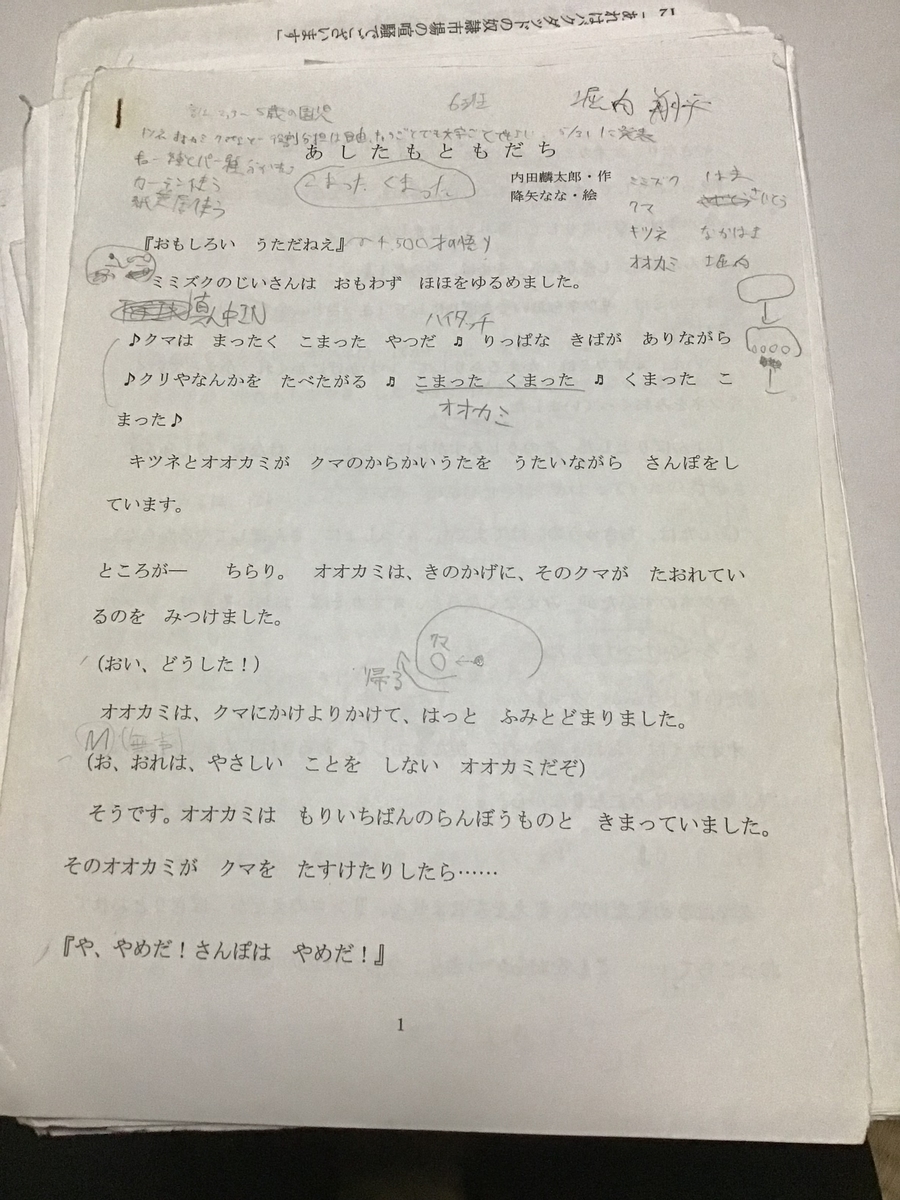 17
「あれはバクダッドの奴隷市場の喧騒でございます」
6班
堀内
5歳の園児
カーテン使う
使う
あしたもともだち
こまった くまった
内田麟太郎・作
降矢なな・絵
ミミズク
クマ さいとう
キツネ なかはま
オオカミ 堀内
『おもしろい うただねえ』 4,500才の悟り
ミミズクのじいさんは おもわず ほほをゆるめました。
真ん中IN
ハイタッチ
♪クマは まったく こまった やつだ ♬ りっぱな きばが ありながら
♪クリやなんかを たべたがる ♬ こまった くまった ♬ くまった こ
オオカミ
まった♪
キツネとオオカミが クマのからかいうたを うたいながら さんぽをし
ています。
ところが― ちらり。 オオカミは、きのかげに、そのクマが たおれてい
るのを みつけました。
クマ
帰る
(おい、どうした!)
オオカミは、クマにかけよりかけて、はっと ふみとどまりました。
M(無音)
(お、おれは、やさしい ことを しない オオカミだぞ)
そうです。オオカミは もりいちばんのらんぼうものと きまっていました。
そのオオカミが クマを たすけたりしたら……
『や、やめだ!さんぽは やめだ!』
1